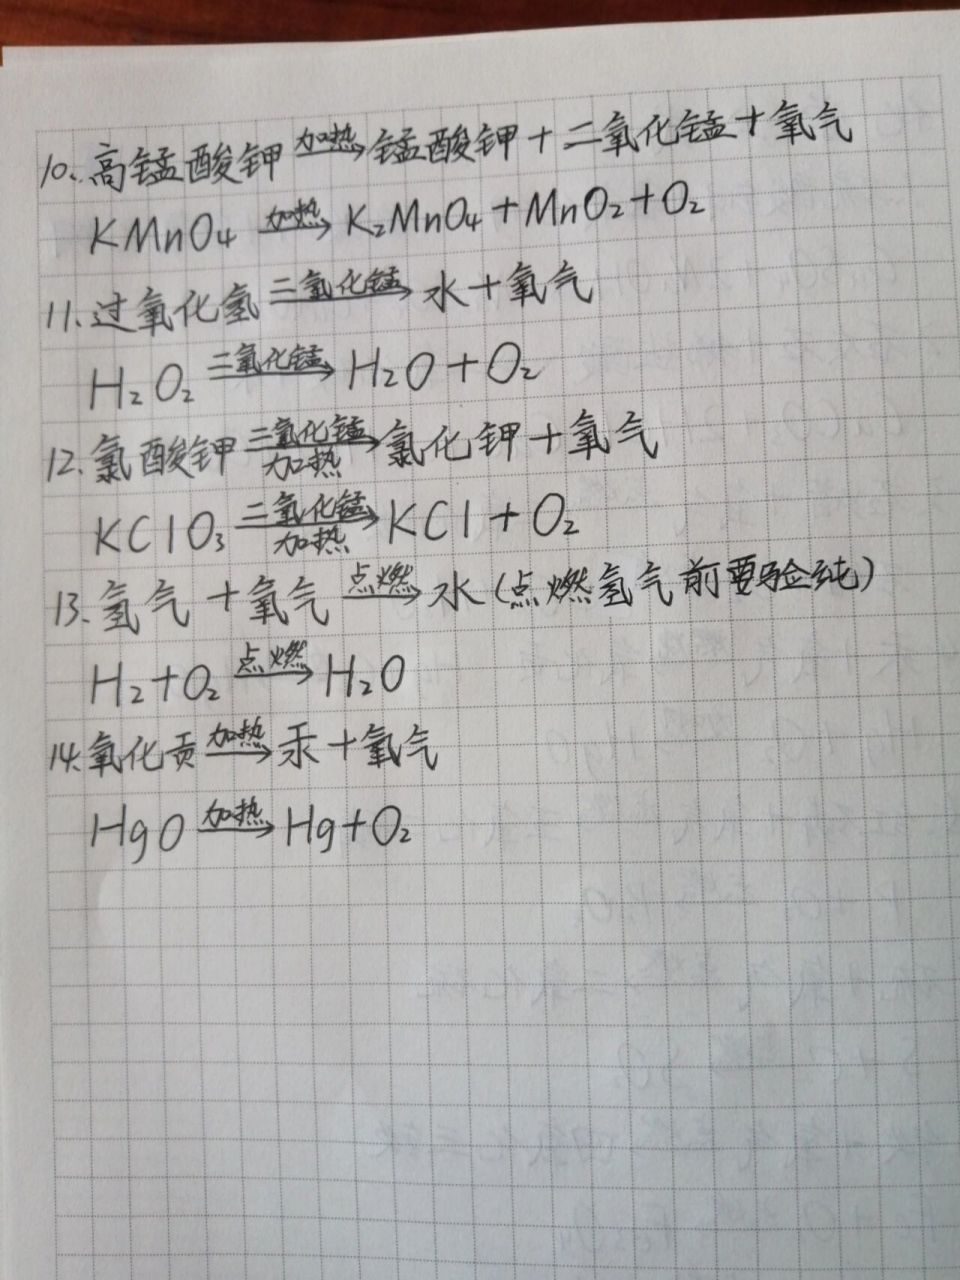 10.高锰酸钾 加热→ 锰酸钾+二氧化锰+氧气
KMnO₄ 加热→ K₂MnO₄+MnO₂+O₂
11.过氧化氢 二氧化锰→ 水+氧气
H₂O₂ 二氧化锰→ H₂O+O₂
12.氯酸钾 二氧化锰 加热→ 氯化钾+氧气
KClO₃ 二氧化锰 加热→ KCl+O₂
13.氢气+氧气 点燃→ 水(点燃氢气前要验纯)
H₂+O₂ 点燃→ H₂O
14.氧化贡 加热→ 汞+氧气
HgO 加热→ Hg+O₂